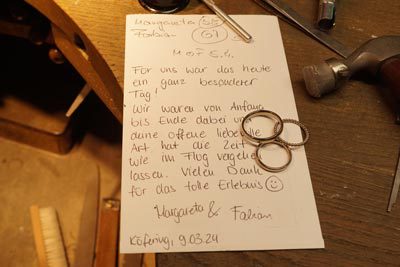 Margareta 55
Fabian 61
M o F 5.4.
Für uns war das heute
ein ganz besonderer
Tag,
Wir waren von Anfang
bis Ende dabei und
deine offene liebevolle
Art hat die Zeit
wie im Flug vergehen
lassen. Vielen Dank
für das tolle Erlebnis
Margareta & Fabian
Köfering, 9.03.24